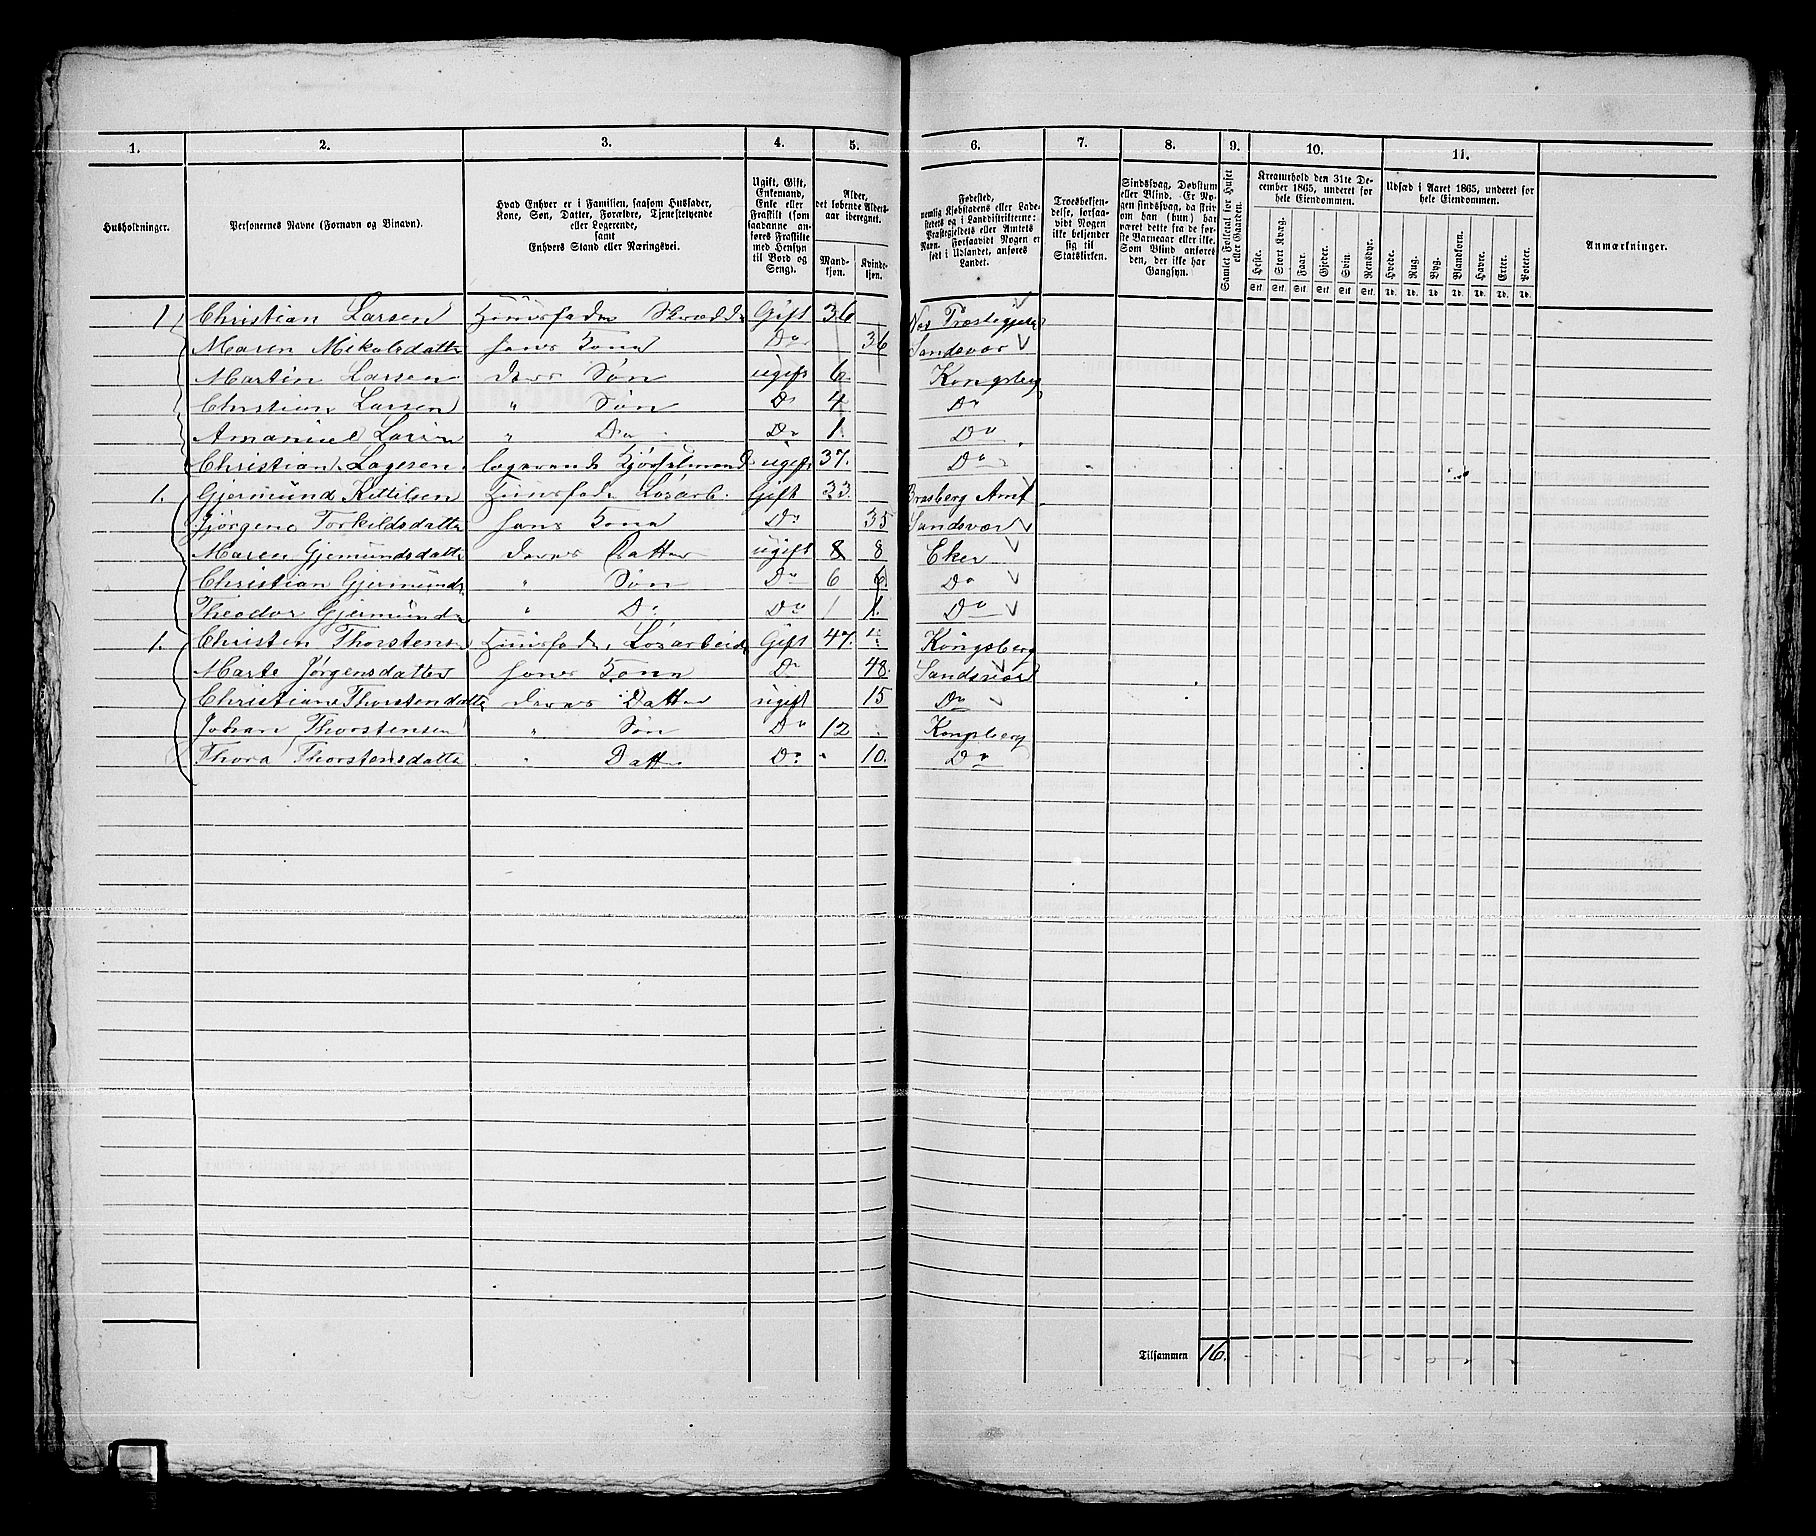 1. 2. 3. 4. 5. 6. 7. 8. 9. 10. 11.
Husholdninger.
Personernes Navne (Fornavn og Binavn).
Hvad Enhver er i Familien, saasom Husfader, Kone, Søn, Datter, Forældre, Tjenestetyende eller Logerende, samt Enhvers Stand eller Næringsvei.
Ugift, Gift, Enkemand, Enke eller Fraskilt (som saadanne anføres Fraskilte med Hensyn til Bord og Seng).
Alder, det løbende Aldersaar iberegnet.
Mandkjøn. Kvindekjøn.
Fødested, nemlig Kjøbstadens eller Ladestedets og i Landdistrikterne: Præstegjeldets eller Amtets Navn. Forsaavidt Nogen er født i Udlandet, anføres Landet.
Troesbekjendelse, forsaavidt Nogen ikke bekjender sig til Statskirken.
Sindssvag, Døvstum eller Blind. Er Nogen sindssvag, da skrives om han (hun) har været dette fra de første Barneaar eller ikke. Som Blind anføres den, der ikke har Gangsyn.
Samlet Folketal for Huset eller Gaarden.
Kreaturhold den 31te December 1865, underet for hele Eiendommen.
Heste. Stort Kvæg. Faar. Gjeder. Svin. Rensdyr.
Stk. Stk. Stk. Stk. Stk. Stk.
Udsæd i Aaret 1865, underet for hele Eiendommen.
Hvede. Rug. Byg. Blandkorn. Havre. Erter. Poteter.
Td. Td. Td. Td. Td. Td. Td.
Anmærkninger.
1 Christian Larsen Huusfader Skrædder Gift 36 Næs Præstegjeld
Maren Nikolsdatter hans Kone Do 36 Sandsvær
Martin Larsen deres Søn ugift 6 Kongsberg
Christian Larsen " Søn Do 4 Do
Amanuel Larsen " Do Do 1 Do
Christian Lagesen logerende ugift 37. Do
1. Gjermund Kittilsen Huusfader Løsarb. Gift 33. Brasberg Amt
Jørgene Torkildsdatter hans Kone Do 35 Sandsvær
Maren Gjemundsdatter deres Datter ugift 8 8 Eker
Christian Gjermunds " Søn Do 6 6. Do
Theodor Gjermunds " Do Do 1 1. Do
1. Christen Thorstensen Huusfader, Løsarbeider Gift 47. " Kongsberg
Marte Jørgensdatter hans Kone Do 48. Sandsvær
Christiane Thorstendatter deres Datter ugift 15 Do
Johan Thorstensen " Søn Do 12 Kongsberg
Thora Thorstensdatter " Datt. Do 10. Do
Tilsammen 16.